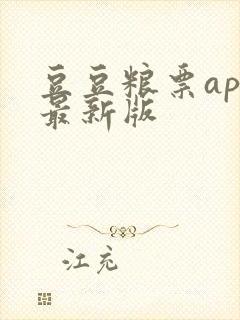 豆豆粮票ap
最新版
江充